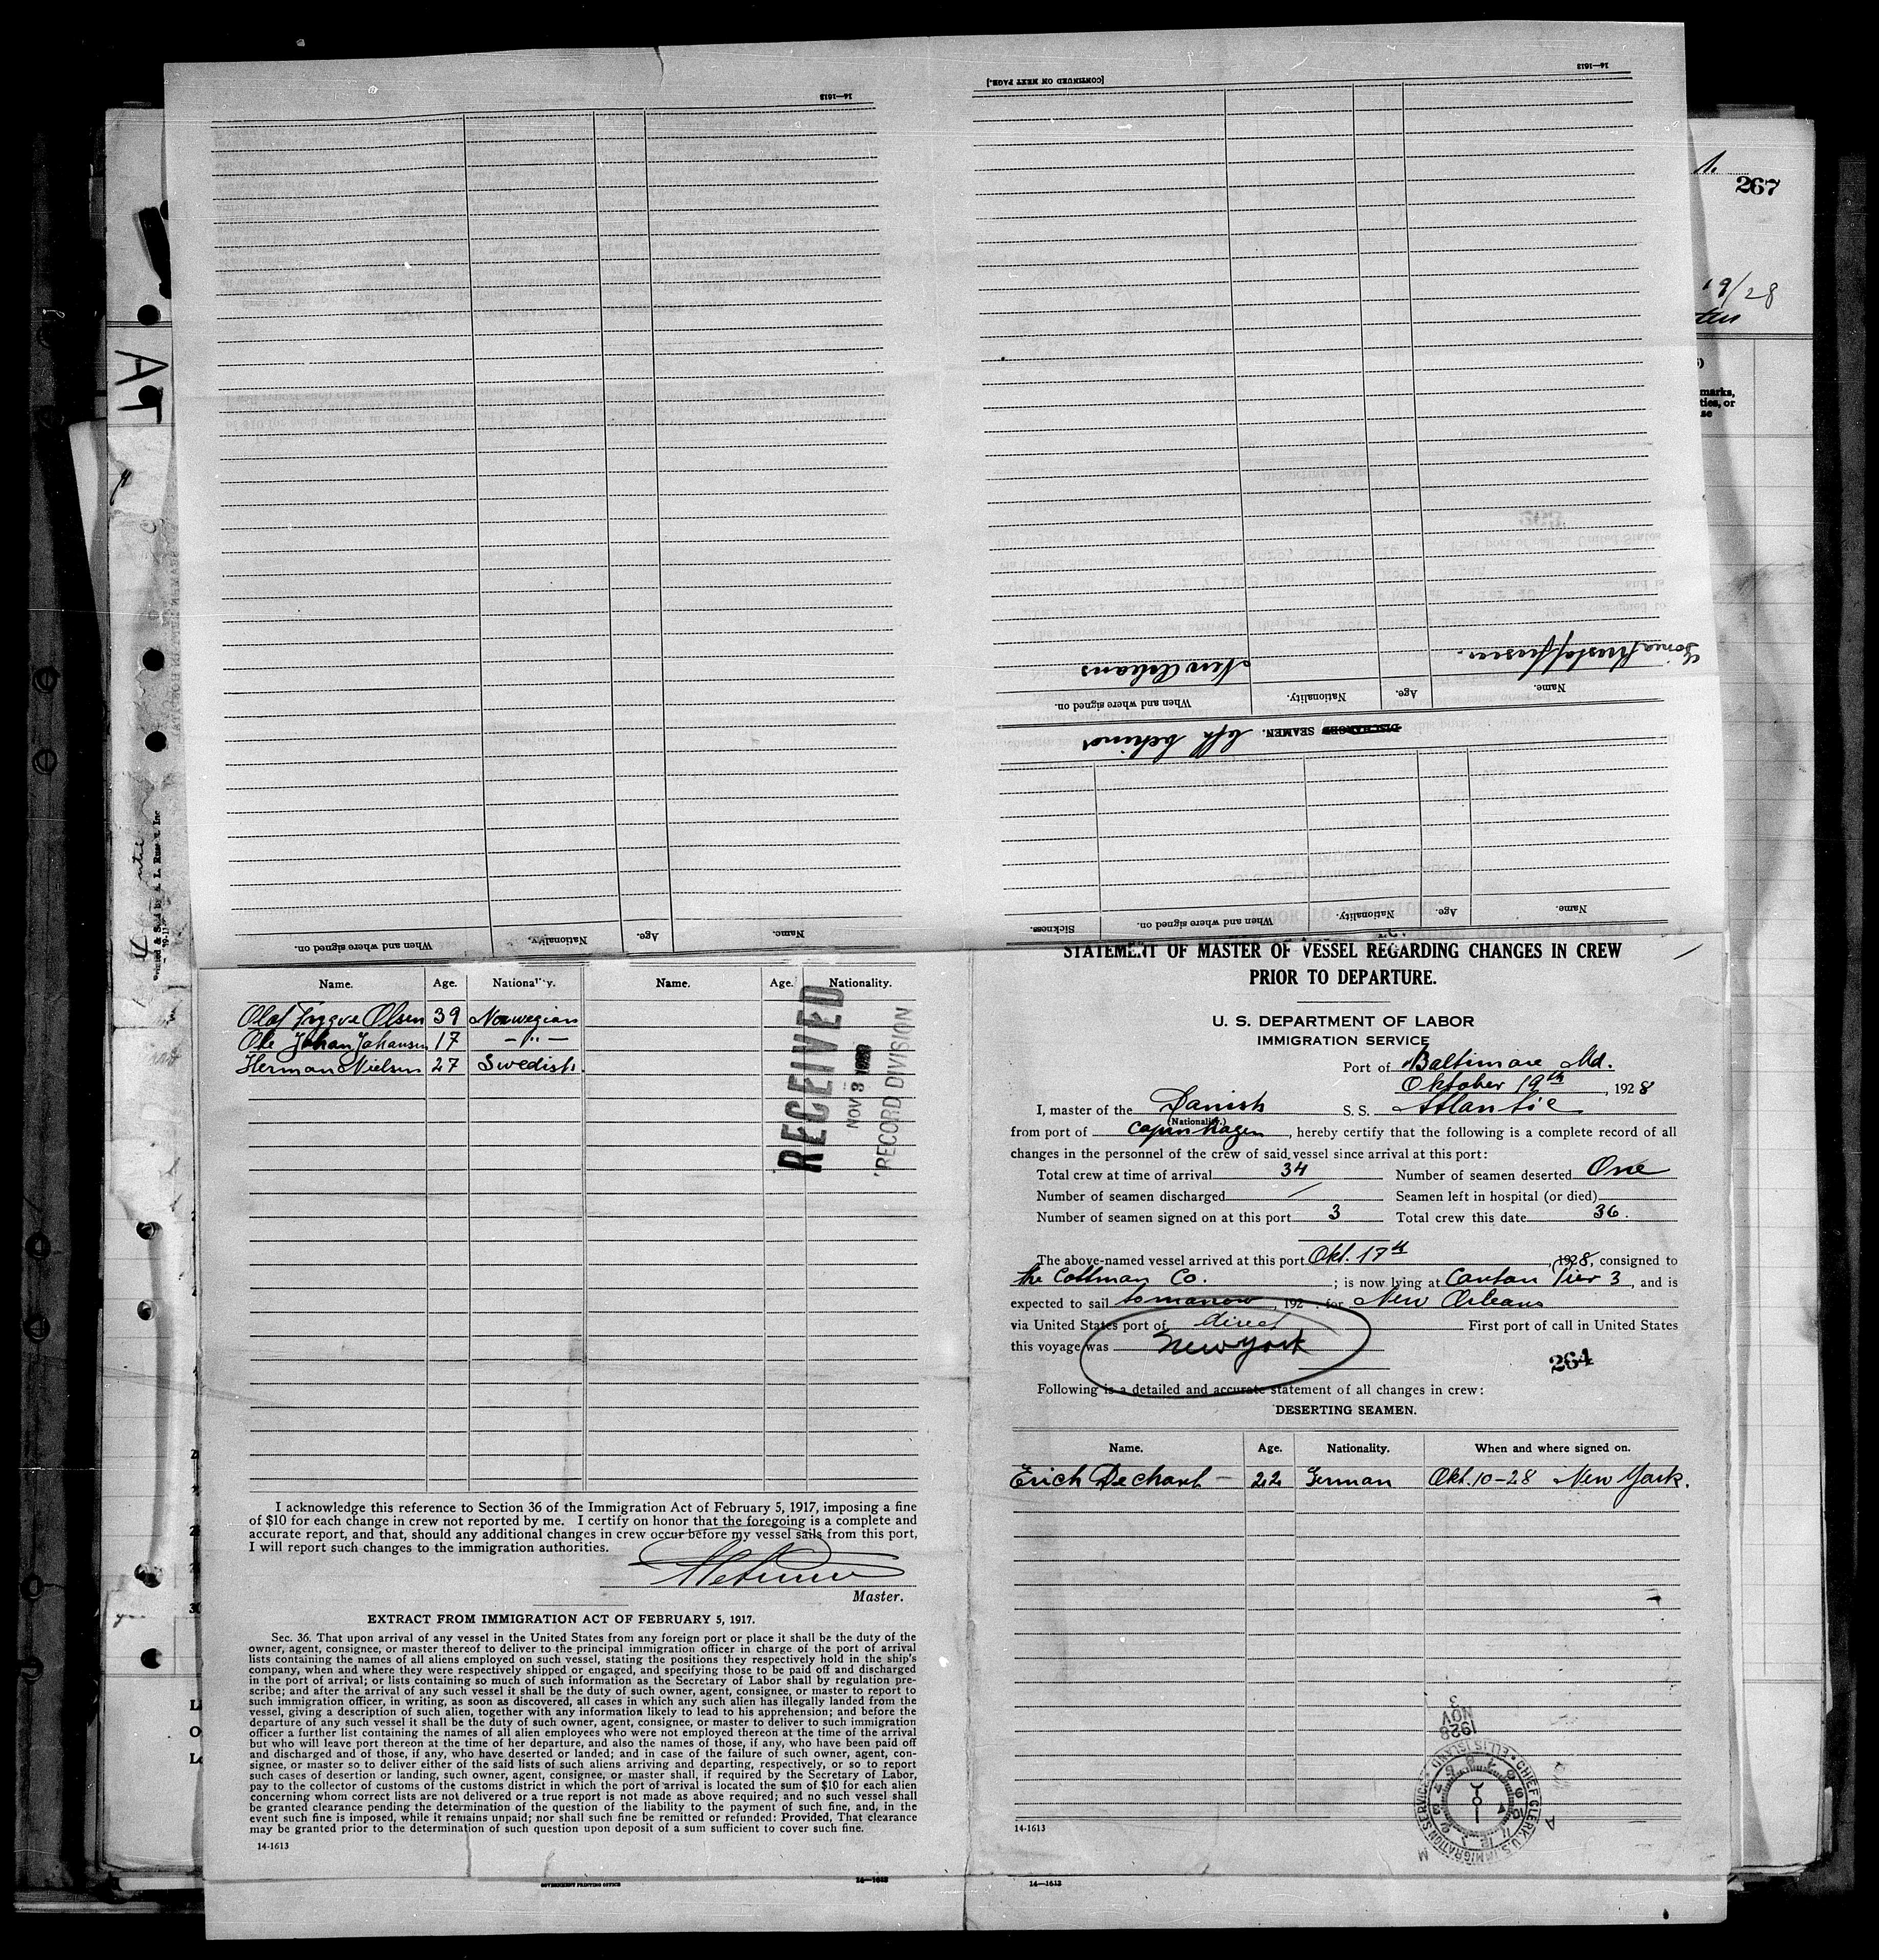 14—1613
[CONTINUED ON NEXT PAGE.]
14—1613
267
19/28
marks,
ties, or
AT
Printed & Sold by
New Orleans
Name. Age. Nationality. When and where signed on.
DISCHARGED SEAMEN. left behind
Name. Age. Nationality. When and where signed on. Sickness.
Name. Age. Nationality. When and where signed on.
Name. Age. Nationality. Name. Age. Nationality.
Olaf Trygve Olsen 39 Norwegian
Ole Johan Johansen 17 -"-
Herman Nielsen 27 Swedish
RECEIVED
NOV 3 1928
RECORD DIVISION
I acknowledge this reference to Section 36 of the Immigration Act of February 5, 1917, imposing a fine
of $10 for each change in crew not reported by me. I certify on honor that the foregoing is a complete and
accurate report, and that, should any additional changes in crew occur before my vessel sails from this port,
I will report such changes to the immigration authorities.
Master.
EXTRACT FROM IMMIGRATION ACT OF FEBRUARY 5, 1917.
Sec. 36. That upon arrival of any vessel in the United States from any foreign port or place it shall be the duty of the
owner, agent, consignee, or master thereof to deliver to the principal immigration officer in charge of the port of arrival
lists containing the names of all aliens employed on such vessel, stating the positions they respectively hold in the ship's
company, when and where they were respectively shipped or engaged, and specifying those to be paid off and discharged
in the port of arrival; or lists containing so much of such information as the Secretary of Labor shall by regulation pre-
scribe; and after the arrival of any such vessel it shall be the duty of such owner, agent, consignee, or master to report to
such immigration officer, in writing, as soon as discovered, all cases in which any such alien has illegally landed from the
vessel, giving a description of such alien, together with any information likely to lead to his apprehension; and before the
departure of any such vessel it shall be the duty of such owner, agent, consignee, or master to deliver to such immigration
officer a further list containing the names of all alien employees who were not employed thereon at the time of the arrival
but who will leave port thereon at the time of her departure, and also the names of those, if any, who have been paid off
and discharged and of those, if any, who have deserted or landed; and in case of the failure of such owner, agent, con-
signee, or master so to deliver either of the said lists of such aliens arriving and departing, respectively, or so to report
such cases of desertion or landing, such owner, agent, consignee, or master shall, if required by the Secretary of Labor,
pay to the collector of customs of the customs district in which the port of arrival is located the sum of $10 for each alien
concerning whom correct lists are not delivered or a true report is not made as above required; and no such vessel shall
be granted clearance pending the determination of the question of the liability to the payment of such fine, and, in the
event such fine is imposed, while it remains unpaid; nor shall such fine be remitted or refunded: Provided, That clearance
may be granted prior to the determination of such question upon deposit of a sum sufficient to cover such fine.
14-1613
GOVERNMENT PRINTING OFFICE
14—1613
STATEMENT OF MASTER OF VESSEL REGARDING CHANGES IN CREW
PRIOR TO DEPARTURE.
U. S. DEPARTMENT OF LABOR
IMMIGRATION SERVICE
Port of Baltimore Md.
Oktober 19th, 1928
I, master of the Danish S. S. Atlantic
(Nationality.)
from port of Copenhagen, hereby certify that the following is a complete record of all
changes in the personnel of the crew of said vessel since arrival at this port:
Total crew at time of arrival 34 Number of seamen deserted One
Number of seamen discharged / Seamen left in hospital (or died)
Number of seamen signed on at this port 3 Total crew this date 36.
The above-named vessel arrived at this port Okt. 17th, 1928, consigned to
the Cottman Co.; is now lying at Canton Pier 3, and is
expected to sail tomorrow, 192 , for New Orleans
via United States port of direct First port of call in United States
this voyage was New York
264
Following is a detailed and accurate statement of all changes in crew:
DESERTING SEAMEN.
Name. Age. Nationality. When and where signed on.
Erich Dechart 22 German Okt. 10-28 New York.
1928 NOV 3
CHIEF CLERK, U.S. IMMIGRATION SERVICE • ELLIS ISLAND
14-1613
14—1613